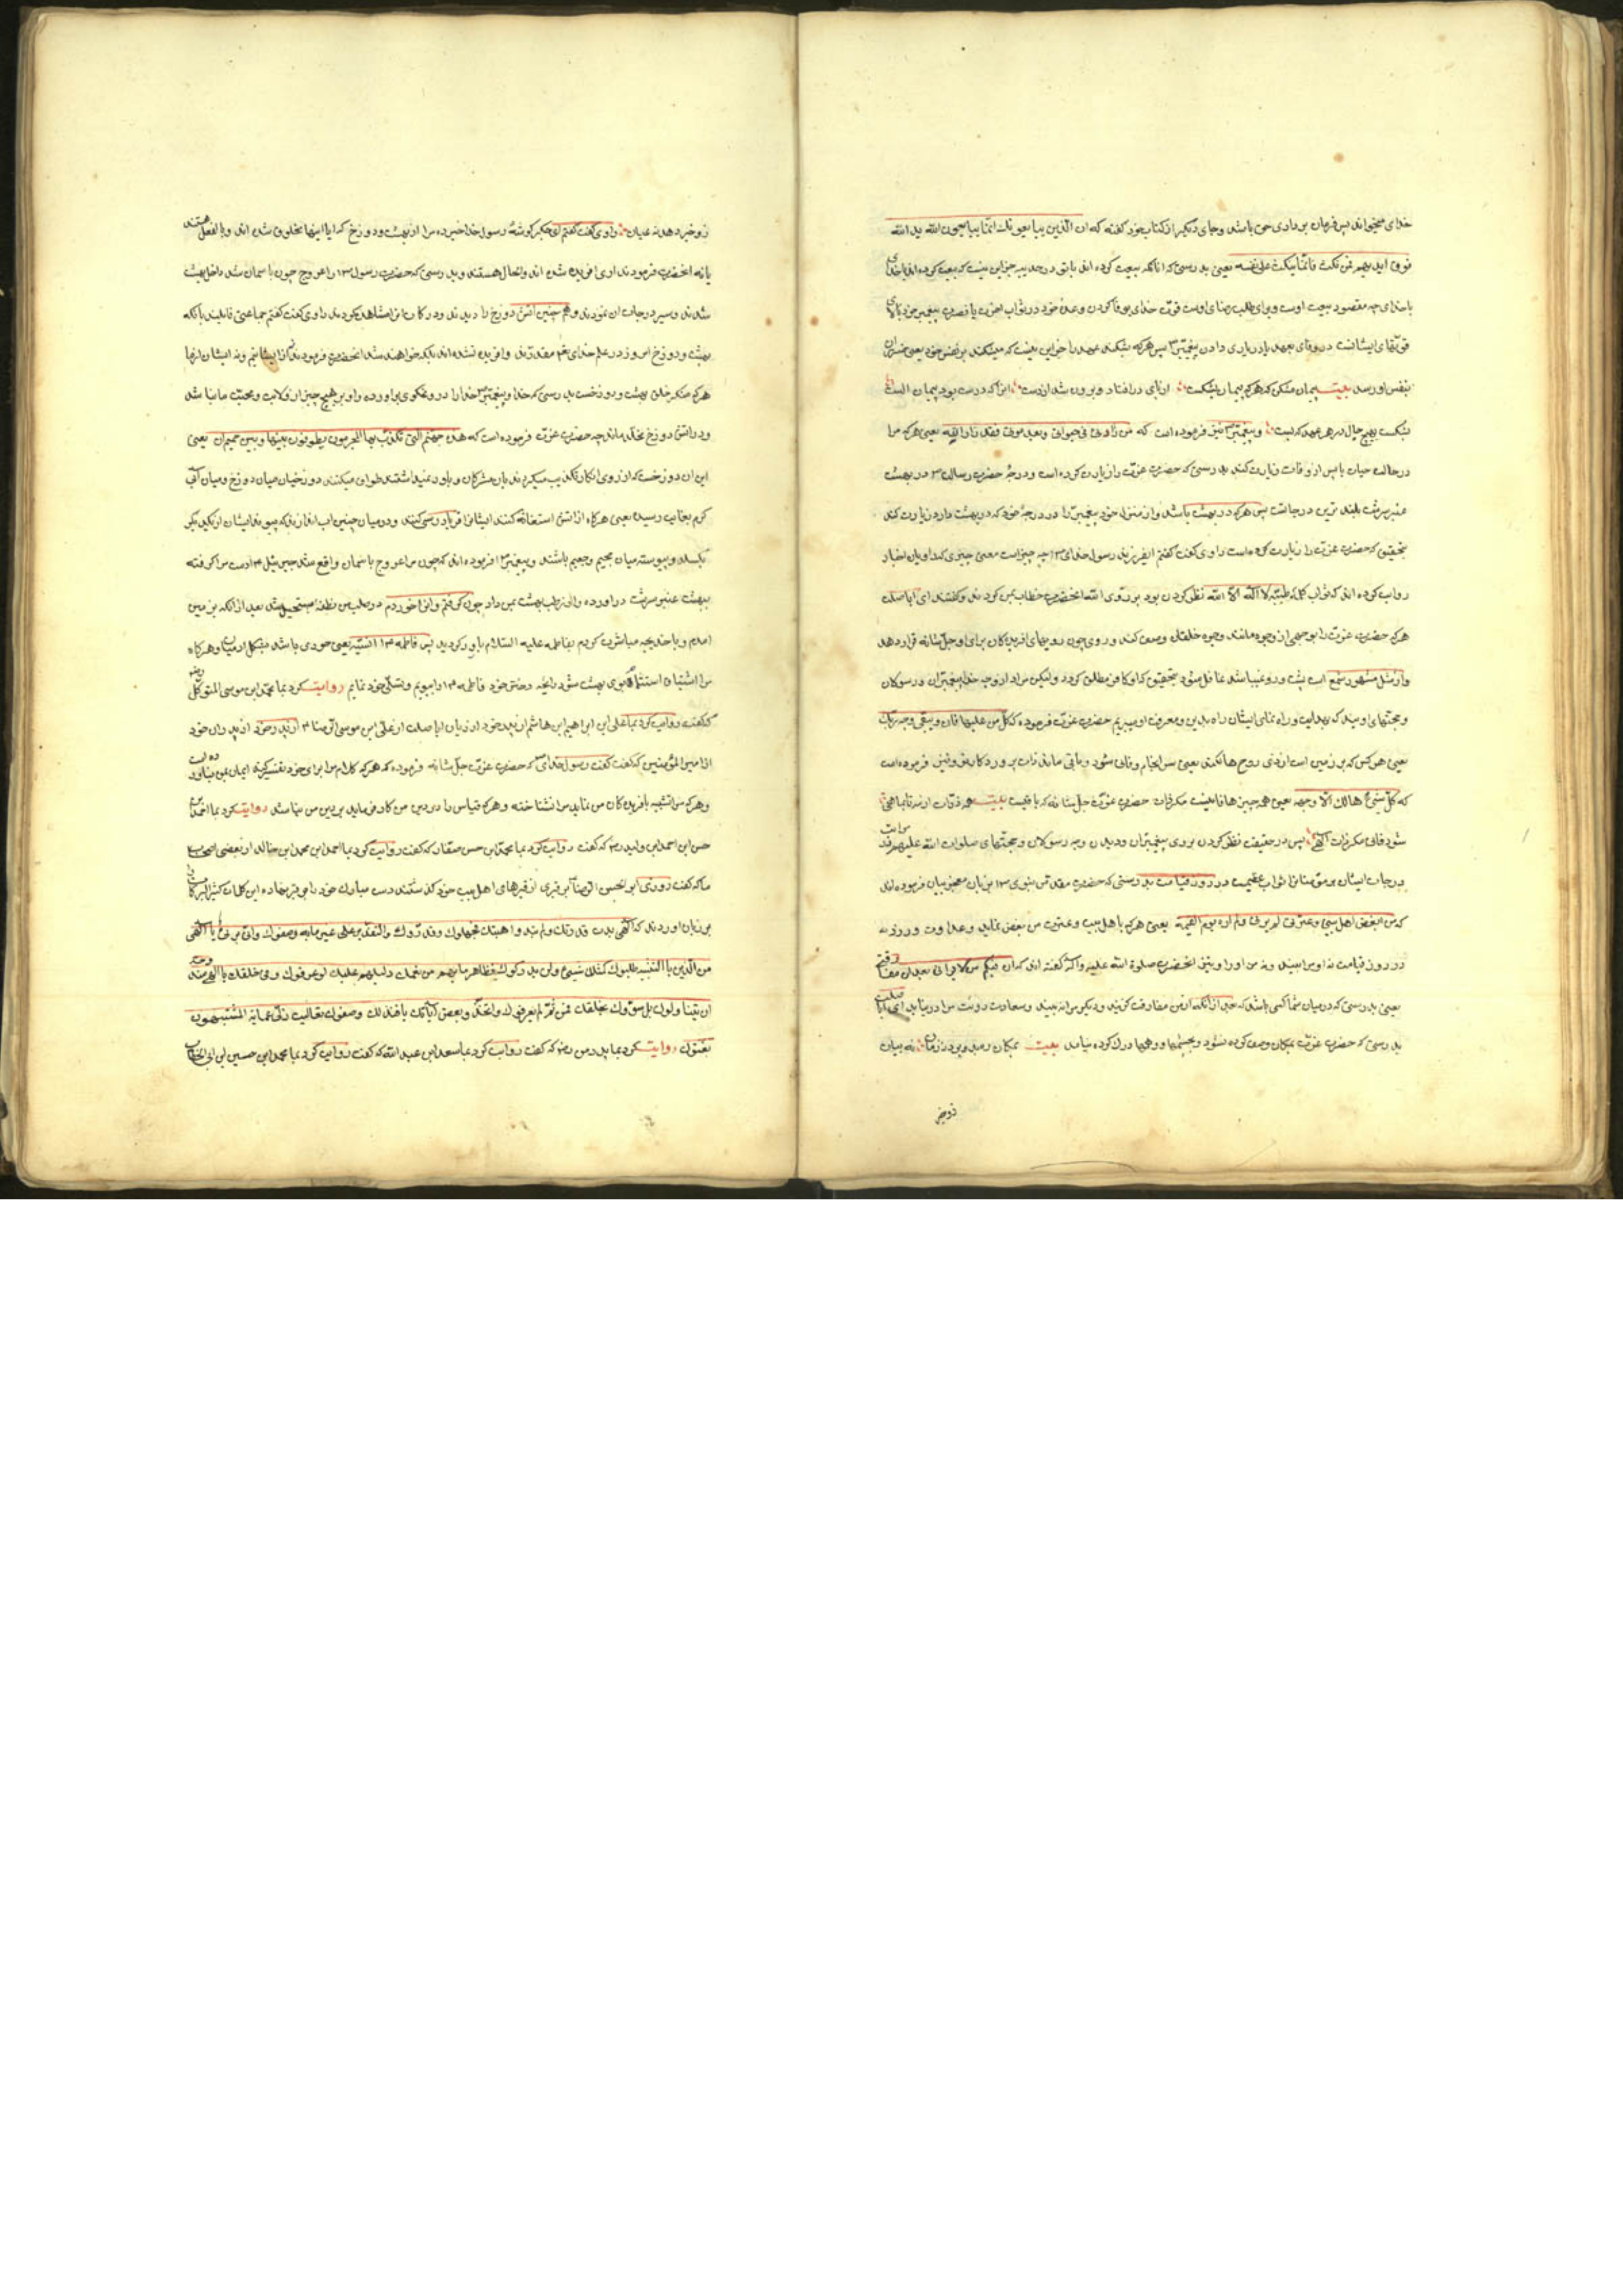 خدای میخواند پس فرمان برداری حق باشد و جای دیگر از کتاب خود گفته که ان الّذین یبایعونک انّما یبایعون الله ید الله
فوق ایدیهم فمن نکث فانّما ینکث علی نفسه یعنی بدرستی که انانکه بیعت کرده اند با تو در حدیبیه جز این نیست که بیعت کرده اند با خدای
با خدای چه مقصود بیعت اوست و برای طلب رضای اوست قوّت خدای بوفا کردن وعده خود در ثواب اخرت یا نصرت پیغمبر خود بالای
قوّتهای ایشانست در وفای بعهد یا در یاری دادن پیغمبر پس هر که بشکند عهد را جز این نیست که میشکند بر نفس خود یعنی ضرر ان
بنفس او رسد بیت پیمان مشکن که هر که پیمان بشکست از پای درافتاد و برون شد از دست انرا که درست بود پیمان الست
نشکست بهیچ حال در هر عهد که بست و پیغمبر نیز فرموده است که من زارنی فی حیوتی و بعد موتی فقد زار الله یعنی هر که مرا
در حالت حیات یا پس از وفات زیارت کند بدرستی که حضرت عزّت را زیارت کرده است و درجهٔ حضرت رسالت در بهشت
عنبر سرشت بلند ترین درجاتست پس هر که در بهشت باشد و از منزل خود پیغمبر را در درجهٔ خود که در بهشت دارد زیارت کند
بتحقیق که حضرت عزّت را زیارت کرده است راوی گفت گفتم ای فرزند رسول خدای چه چیز است معنی خبری که راویان اخبار
روایت کرده اند که ثواب کلمهٔ طیّبهٔ لا اله الّا الله نظر کردن بود بر روی الله انحضرت خطاب بمن کردند و گفتند ای ابا صلت
هر که حضرت عزّت را بوجهی از وجوه مانند وجوه خلقان وصف کند و روی چون رویهای افریدگان برای او جلّ شانه قرار دهد
و از مثل مشهور شمع است پشت و رو نباشد غافل شود بتحقیق که او کافر مطلق گردد ولیکن مراد از وجه خدا پیغمبران و رسولان
و حجّتهای اویند که بهدایت و راه نمای ایشان راه بدین و معرفت او میبریم حضرت عزّت فرموده که کلّ من علیها فان و یبقی وجه ربّک
یعنی هر کس که بر زمین است از ذی روح هالکند یعنی سرانجام فانی شود و باقی ماند ذات پروردکار تو و نیز فرموده است
که کلّ شیئ هالک الّا وجهه یعنی همه چیزها فانیست مکر ذات حضرت عزّت جلّ شانه که باقیست بیت همه ذرّات از مه تا بماهی
شود فانی مکر ذات الهی پس در حقیقت نظر کردن بروی پیغمبران و دیدن وجه رسولان و حجّتهای صلوات الله علیهم در
درجات ایشان بر مؤمنانرا ثواب عظیمست در روز قیامت بدرستی که حضرت مقدّس نبوی بزبان معجز بیان فرموده اند
که من ابغض اهل بیتی و عترتی لم یرنی و لم اره یوم القیمة یعنی هر که با اهل بیت و عترت من بغض نماید و عداوت ورزد نه
در روز قیامت نه او مرا بیند و نه من او را و نیز انحضرت صلوة الله علیه و اله گفته اند که ان فیکم من لا یرانی بعد ان یفارقنی
یعنی بدرستی که در میان شما کسی باشد که بعد از انکه از من مفارقت کزیند دیکر مرا نه بیند و سعادت رؤیت مرا در نیابد ای ابا صلت
بدرستی که حضرت عزّت بمکان وصف کرده نشود و بچشمها و وهمها درک کرده نیاید بیت
زو خبر
زو خبر دهد نه عیان راوی گفت گفتم ای جکر گوشهٔ رسول خدا خبر ده مرا از بهشت و دوزخ که ایا اینها مخلوق شده اند و بالفعل هستند
یا نه انحضرت فرمودند اری افریده شده اند و الحال هستند و بدرستی که حضرت رسول را عروج چون باسمان شد داخل بهشت
شدند و سیر درجات ان نمودند و همچنین اتش دوزخ را دیدند و درکات انرا مشاهده کردند راوی گفت گفتم جماعتی قایلند بانکه
بهشت و دوزخ امروز در علم خدای هم مقدّرند و افریده نشده اند بلکه خواهند شد انحضرت فرمودند که نه ما از ایشانیم و نه ایشان از ما
هر که منکر خلق بهشت و دوزخست بدرستی که خدا و پیغمبر خدا را دروغکوی براورده و او بر هیچ چیز از ولایت و محبّت ما نباشد
و در اتش دوزخ مخلّد ماند چه حضرت عزّت فرموده است که هذه جهنّم التی یکذّب بها المجرمون یطوفون بینها و بین حمیم ان یعنی
این ان دوزخست که از روی انکار تکذیب میکردند بان مشرکان و باور نمیداشتند طواف میکنند دوزخیان میان دوزخ و میان آبی
کرم بغایت رسیده یعنی هرکاه از اتش استغاثه کنند ایشانرا فریاد رسی کنند و در میان چنین اب اندازند که پیوند ایشان از یکدیکر
بکسلد و پیوسته میان جحیم و حمیم باشند و پیغمبر فرموده اند که چون مرا عروج باسمان واقع شد جبرئیل دست مرا کرفته
ببهشت عنبر سرشت دراورده و از رطب بهشت بمن داد چون کرفتم و انرا خوردم در صلب من نطفه مستحیل شد بعد از انکه بزمین
امدم و با خدیجه مباشرت کردم بفاطمه علیه السّلام بارور کردید پس فاطمه انسیّه یعنی حوری باشد بشکل ادمیان و هرکاه
مرا اشتیاق استشمام بوی بهشت شود رایحهٔ دختر خود فاطمه را ببویم و تسلّی خود نمایم روایت کرد بما محمّد ابن موسی المتوکل
که گفت روایت کرد بما علی ابن ابراهیم ابن هاشم از پدر خود از ریان ابا صلت از علی ابن موسی الرّضا از پدر خود از پدران خود
از امیر المؤمنین که گفت گفت رسول خدای که حضرت عزّت جلّ شانه فرموده که هر که کلام مرا برای خود تفسیر کند ایمان بمن نیاورده است
و هر که مرا تشبیه بافریدکان من نماید مرا نشناخته و هر که قیاس را در دین من کار فرماید بر دین من نباشد روایت کرد بما احمد ابن
حسن ابن احمد ابن ولید که گفت روایت کرد بما محمّد ابن حسن صفّار که گفت روایت کرد بما احمد ابن محمد ابن خالد از بعضی اصحاب
ما که گفت روزی ابو الحسن الرّضا بر قبری از قبرهای اهل بیت خود گذشتند دست مبارک خود را بر قبر نهاده این کلمات کثیر البرکات
بر زبان اوردند که الهی بدت قدرتک و لم تبد واهیتک فجهلوک و قدّروک و التقدیر علی غیر ما به وصفوک و انّی بریٔ یا الهی
من الّذین بالتشبیه طلبوک کمثلک شیئ و لن یدرکوک فظاهر ما بهم من نعمک دلیلهم علیک لو عرفوک و فی خلقک یا الهی مندوحة
ان یتناولوک بل سوّوک بخلقک فمن ثمّ لم یعرفوک و اتخذوا بعض آیاتک ربّا فبذلک وصفوک تعالیت ربّی عمّا به المشبّهون
نعتوک روایت کرد بما پدر من که گفت روایت کرد بما سعد ابن عبد الله که گفت روایت کرد بما محمد ابن حسین ابن ابی الخطاب